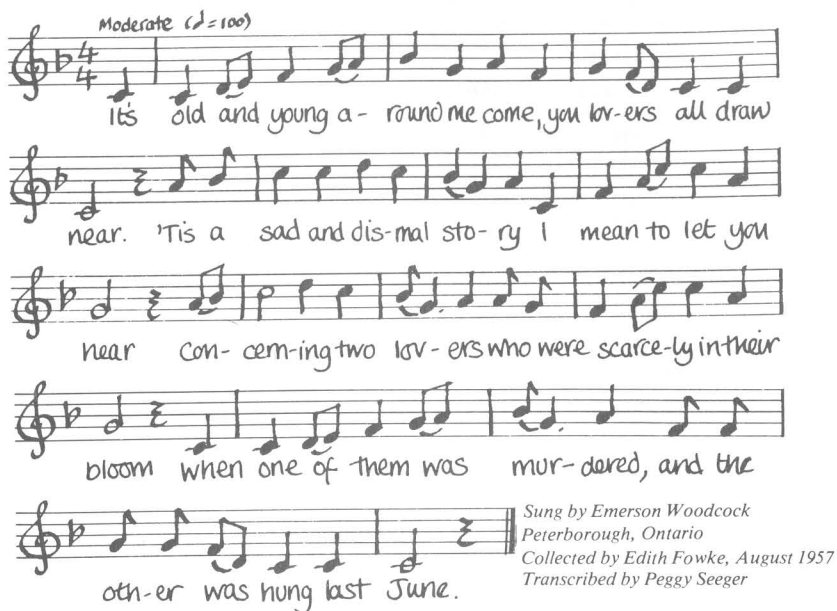 Moderate (♩=100)
It's old and young a- round me come, you lov-ers all draw
near. 'Tis a sad and dis-mal sto-ry I mean to let you
near con-cern-ing two lov-ers who were scarce-ly in their
bloom when one of them was mur-dered, and the
oth-er was hung last June.
Sung by Emerson Woodcock
Peterborough, Ontario
Collected by Edith Fowke, August 1957
Transcribed by Peggy Seeger